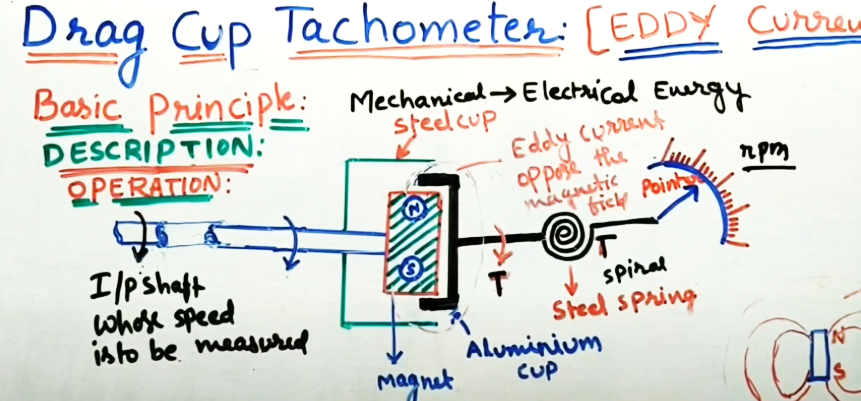 Drag Cup Tachometer: [EDDY Curren
Basic Principle:
DESCRIPTION:
OPERATION:
Mechanical → Electrical Energy
steel cup
Eddy current
oppose the
magnetic
field
rpm
Pointer
N
S
T
T
spiral
Steel spring
I/p shaft
whose speed
is to be measured
Aluminium
cup
Magnet
N
S